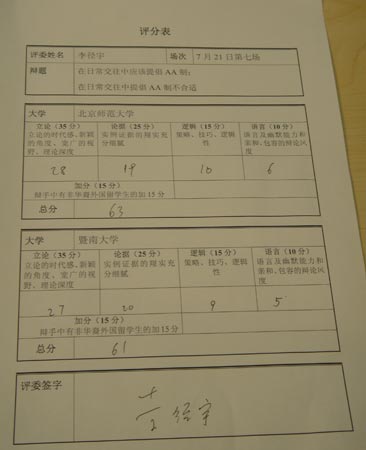 评分表
评委姓名 李径宇 场次 7月21日第七场
辩题 在日常交往中应该提倡AA制;
在日常交往中提倡AA制不合适
大学 北京师范大学
立论(35分) 论据(25分) 逻辑(15分) 语言(10分)
立论的时代感、新颖 实例证据的翔实充 策略、技巧、逻辑 语言及幽默能力和
的角度、宽广的视 分细腻 性 亲和、包容的辩论风
野、理论深度 度
28 19 10 6
加分(15分)
辩手中有非华裔外国留学生的加15分
总分 63
大学 暨南大学
立论(35分) 论据(25分) 逻辑(15分) 语言(10分)
立论的时代感、新颖 实例证据的翔实充 策略、技巧、逻辑 语言及幽默能力和
的角度、宽广的视 分细腻 性 亲和、包容的辩论风
野、理论深度 度
27 20 9 5
加分(15分)
辩手中有非华裔外国留学生的加15分
总分 61
评委签字 李径宇